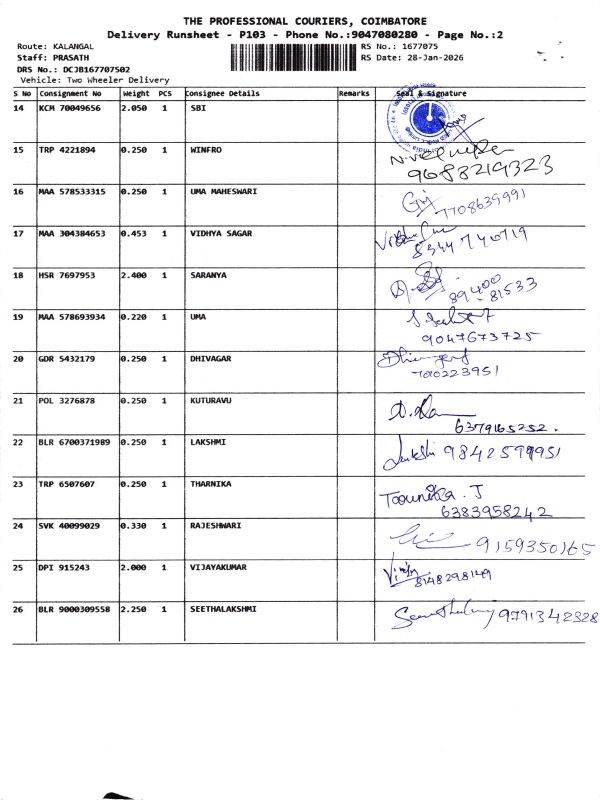 THE PROFESSIONAL COURIERS, COIMBATORE
Delivery Runsheet - P103 - Phone No.:9047080280 - Page No.:2
Route: KALANGAL
RS No.: 1677075
Staff: PRASATH
RS Date: 28-Jan-2026
DRS No.: DCJB167707502
Vehicle: Two Wheeler Delivery
S No Consignment No Weight PCS Consignee Details Remarks Seal & Signature
14 KCM 70049656 2.050 1 SBI
15 TRP 4221894 0.250 1 WINFRO
9688219323
16 MAA 578533315 0.250 1 UMA MAHESWARI
7708639991
17 MAA 304384653 0.453 1 VIDHYA SAGAR
8344746719
18 HSR 7697953 2.400 1 SARANYA
89400
81533
19 MAA 578693934 0.220 1 UMA
9047673725
20 GDR 5432179 0.250 1 DHIVAGAR
21 POL 3276878 0.250 1 KUTURAVU
6379165252.
22 BLR 6700371989 0.250 1 LAKSHMI
9842599951
23 TRP 6507607 0.250 1 THARNIKA
J
6383958242
24 SVK 40099029 0.330 1 RAJESHWARI
9159350165
25 DPI 915243 2.000 1 VIJAYAKUMAR
8148298149
26 BLR 9000309558 2.250 1 SEETHALAKSHMI
9791342328